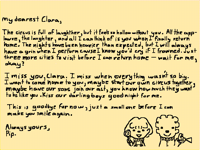 my dearest Clara,
The circus is full of laughter, but it feels so hollow without you. All the
laughter, and all I can think of is you when I finally return
home. The nights have been than expected, but I will always
have a grin when I perform cause I know you'd cry if I frowned. Just
three more cities to visit before I can return home - wait for me,
okay?
I miss you, Clara. I miss when everything wasn't so big.
I want to come home to you, maybe start our own circus together,
maybe have our sons join our act, you know how much they want
to be like you. Kiss our darling boys good night for me.
This is goodbye for now, just a small one before I can
make you smile again.
Always yours,
Pip.